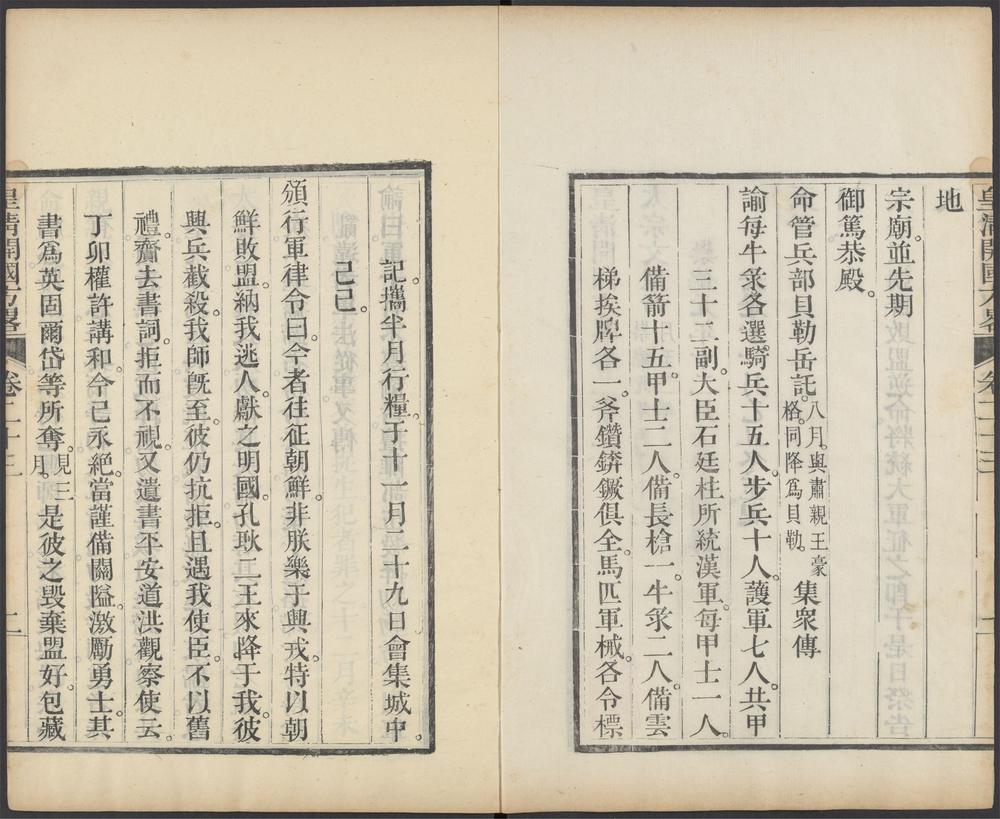 地
宗廟並先期
御篤恭殿
命管兵部貝勒岳託八月與肅親王豪格同降爲貝勒集衆傳
諭每牛彔各選騎兵十五人步兵十人護軍七人共甲
三十二副大臣石廷柱所統漢軍每甲士一人
備箭十五甲士二人備長槍一牛彔二人備雲
梯挨牌各一斧鑽錛鐝俱全馬匹軍械各令標
記攜半月行糧于十一月二十九日會集城中
己巳
頒行軍律令曰今者往征朝鮮非朕樂于興戎特以朝
鮮敗盟納我逃人獻之明國孔耿二王來降于我彼
興兵截殺我師旣至彼仍抗拒且遇我使臣不以舊
禮齎去書詞拒而不視又遺書平安道洪觀察使云
丁卯權許講和今已永絕當謹備關隘激勵勇士其
書爲英固爾岱等所奪見三月是彼之毀棄盟好包藏
皇清開國方畧
卷二十三
二